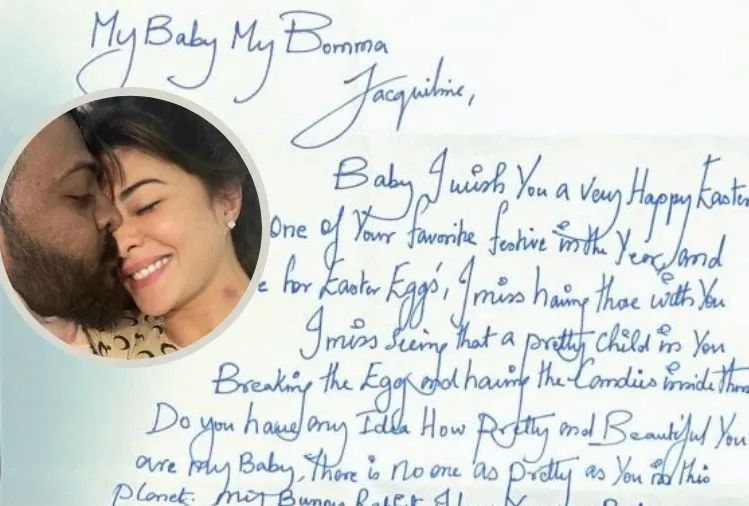 My Baby My Bomma
Jacqueline,
Baby I wish You a very Happy Easter
One of Your favorite festive in the Year, and
e for Easter Egg's, I miss having those with You
I miss seeing that a pretty child in You
Breaking the Egg and having the Candies inside them
Do you have any Idea How pretty and Beautiful You
are my Baby, There is no one as pretty as You in this
planet. my Bunny Rabbit I love You my Baby